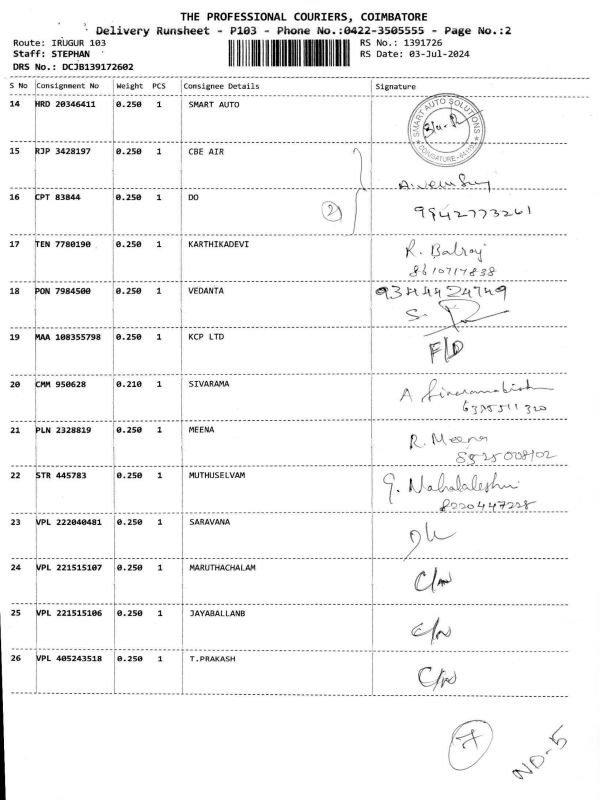 THE PROFESSIONAL COURIERS, COIMBATORE
Delivery Runsheet - P103 - Phone No.:0422-3505555 - Page No.:2
Route: IRUGUR 103 RS No.: 1391726
Staff: STEPHAN RS Date: 03-Jul-2024
DRS No.: DCJB139172602
S No Consignment No Weight PCS Consignee Details Signature
14 HRD 20346411 0.250 1 SMART AUTO
SMART AUTO SOLUTIONS
COIMBATORE-641103
15 RJP 3428197 0.250 1 CBE AIR
16 CPT 83844 0.250 1 DO
2 9942773261
17 TEN 7780190 0.250 1 KARTHIKADEVI R. Balraj
8610717838
18 PON 7984500 0.250 1 VEDANTA 9344424749
S.
19 MAA 108355798 0.250 1 KCP LTD F/D
20 CMM 950628 0.210 1 SIVARAMA A
21 PLN 2328819 0.250 1 MEENA R. Meena
22 STR 445783 0.250 1 MUTHUSELVAM G.
8220447228
23 VPL 222040481 0.250 1 SARAVANA
24 VPL 221515107 0.250 1 MARUTHACHALAM
25 VPL 221515106 0.250 1 JAYABALLANB
26 VPL 405243518 0.250 1 T.PRAKASH
7
ND-5